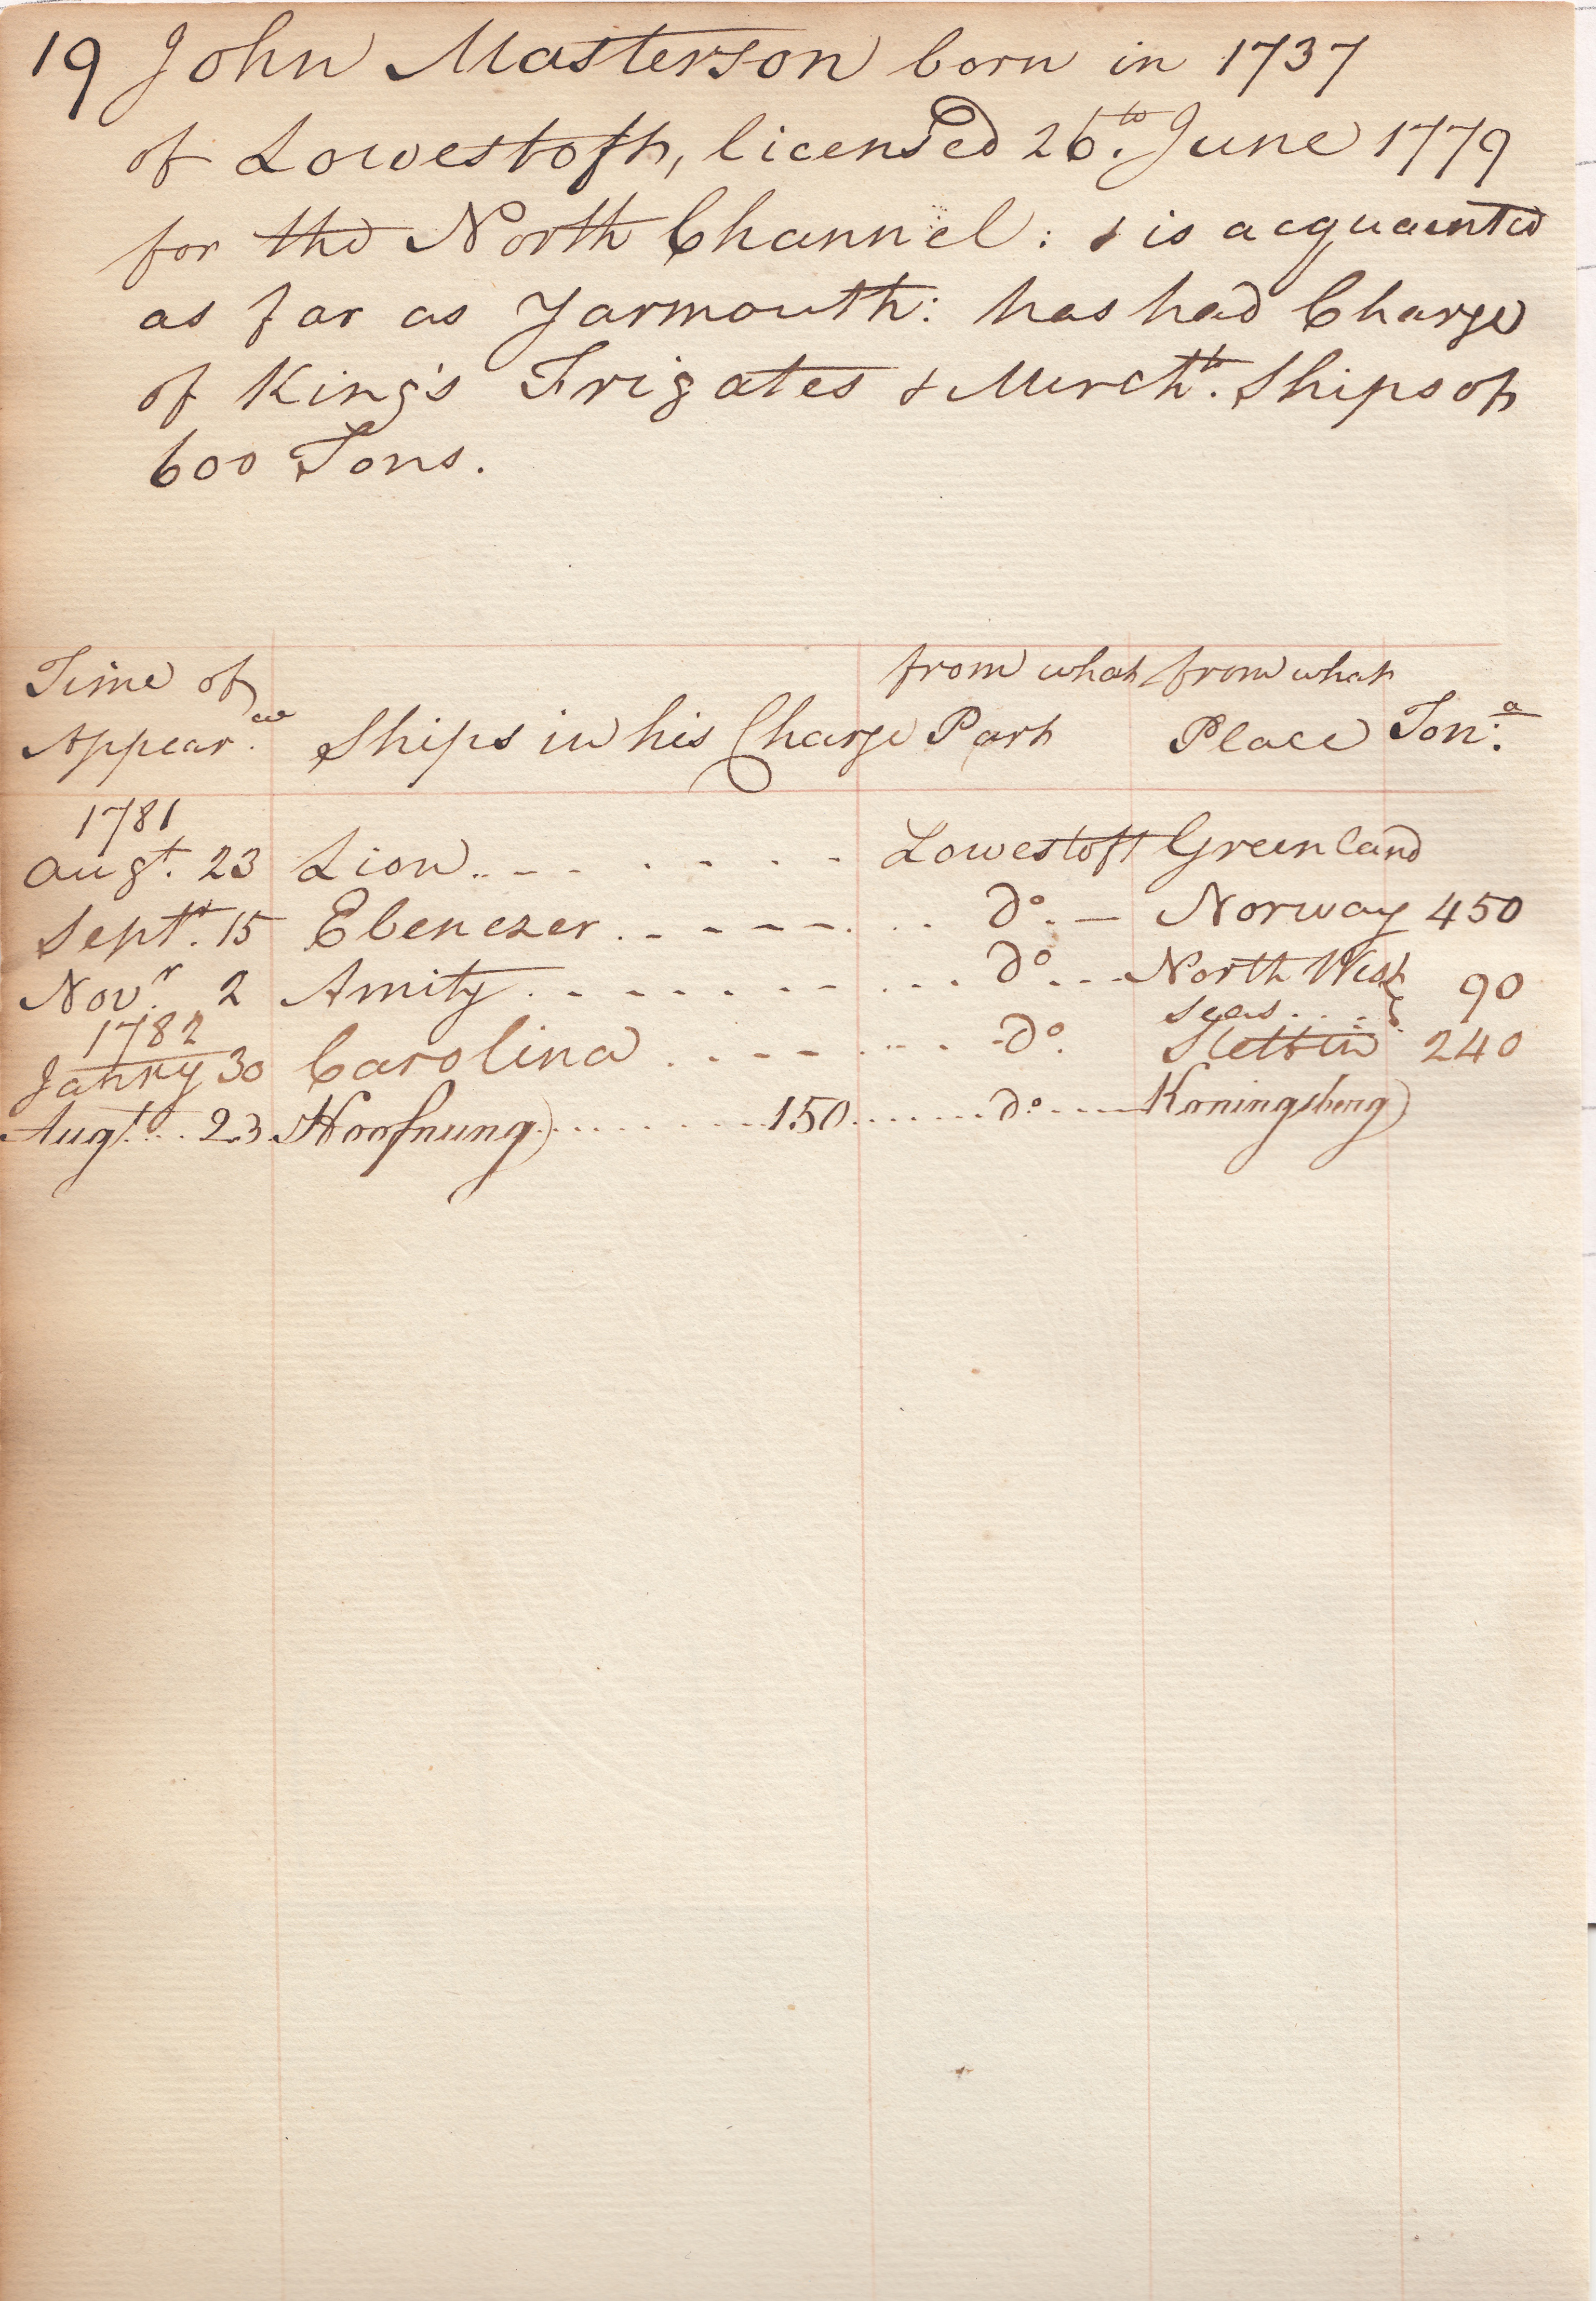 19 John Masterson born in 1737
of Lowestoft, licensed 26th. June 1779
for the North Channel: & is acquainted
as far as Yarmouth: has had Charge
of King's Frigates & Mercht. Ships of
600 Tons.
Time of Appear.ce Ships in his Charge from what Part from what Place Ton:a
1781
Augt. 23 Lion Lowestoft Greenland
Septr. 15 Ebenezer do. Norway 450
Novr. 2 Amity do North West seas 90
1782
Janry 30 Carolina do. Stettin 240
Augt. 23 Hoofnung 150 do Koningsberg